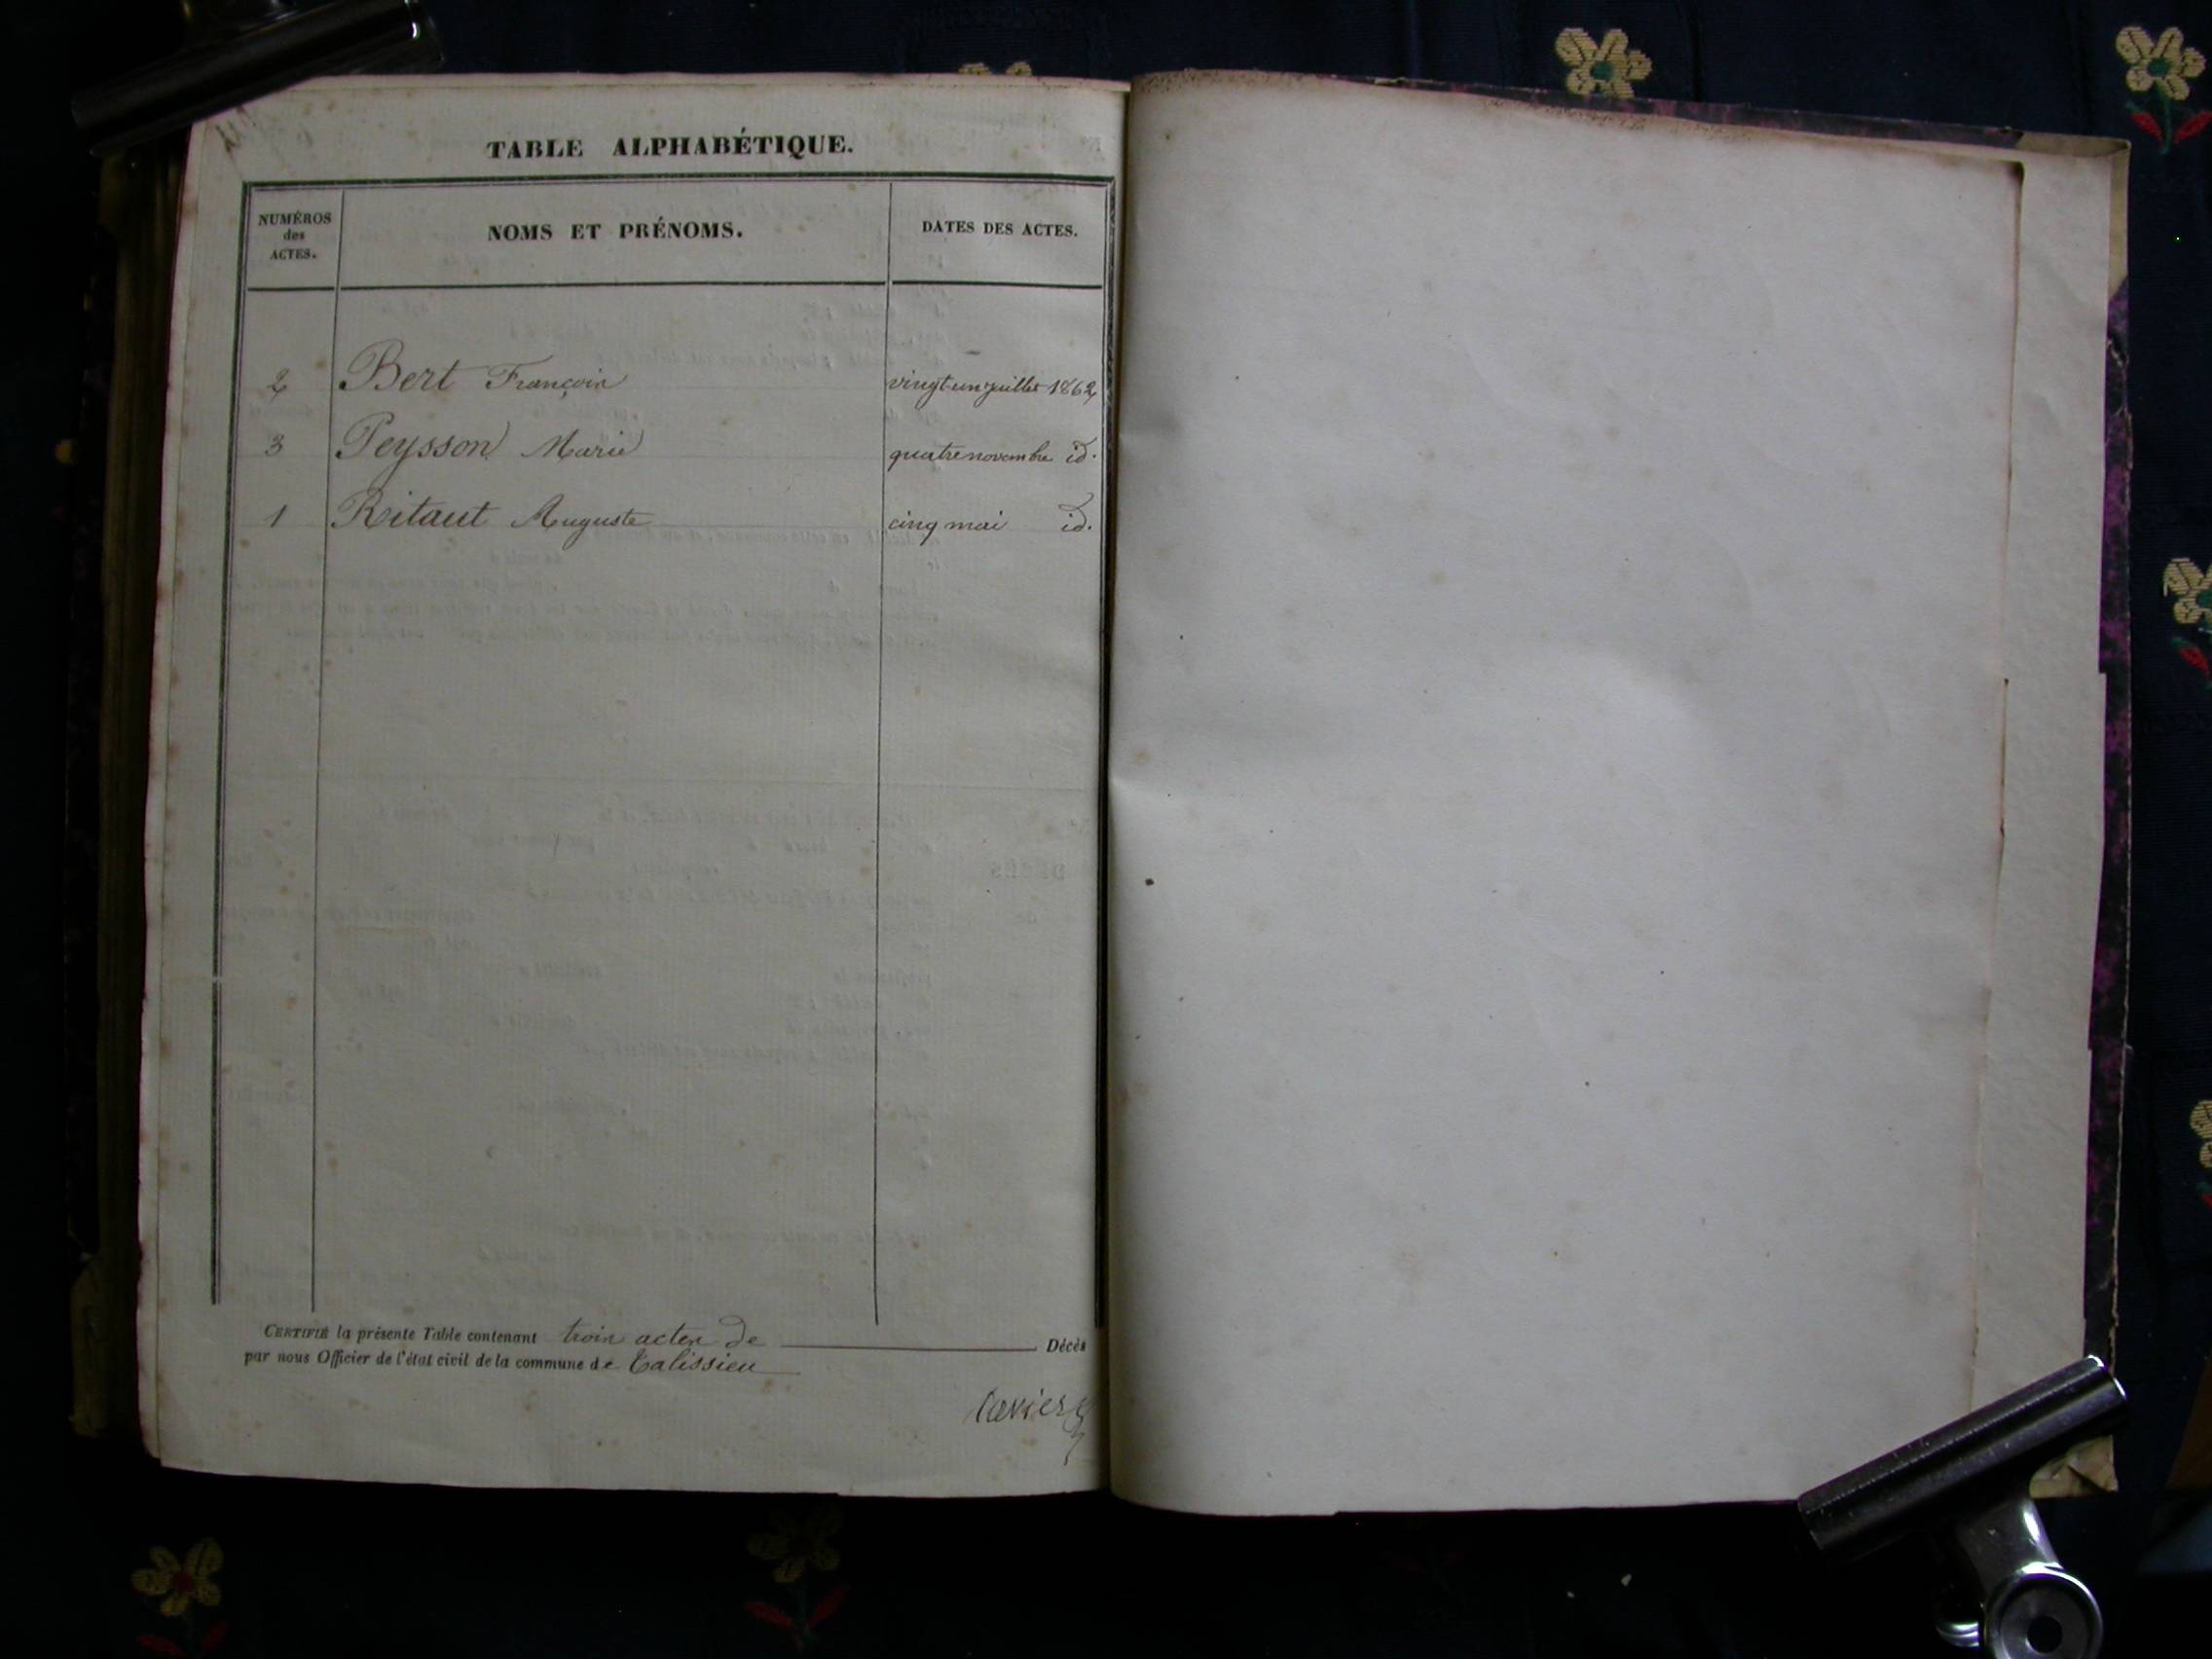 TABLE ALPHABÉTIQUE.
NUMÉROS des ACTES.
NOMS ET PRÉNOMS.
DATES DES ACTES.
2 Bert François vingt-un juillet 1862
3 Peysson Marie quatre novembre id.
1 Ritaut Auguste cinq mai id.
CERTIFIÉ la présente Table contenant trois actes de Décès
par nous Officier de l'état civil de la commune de Talissieu